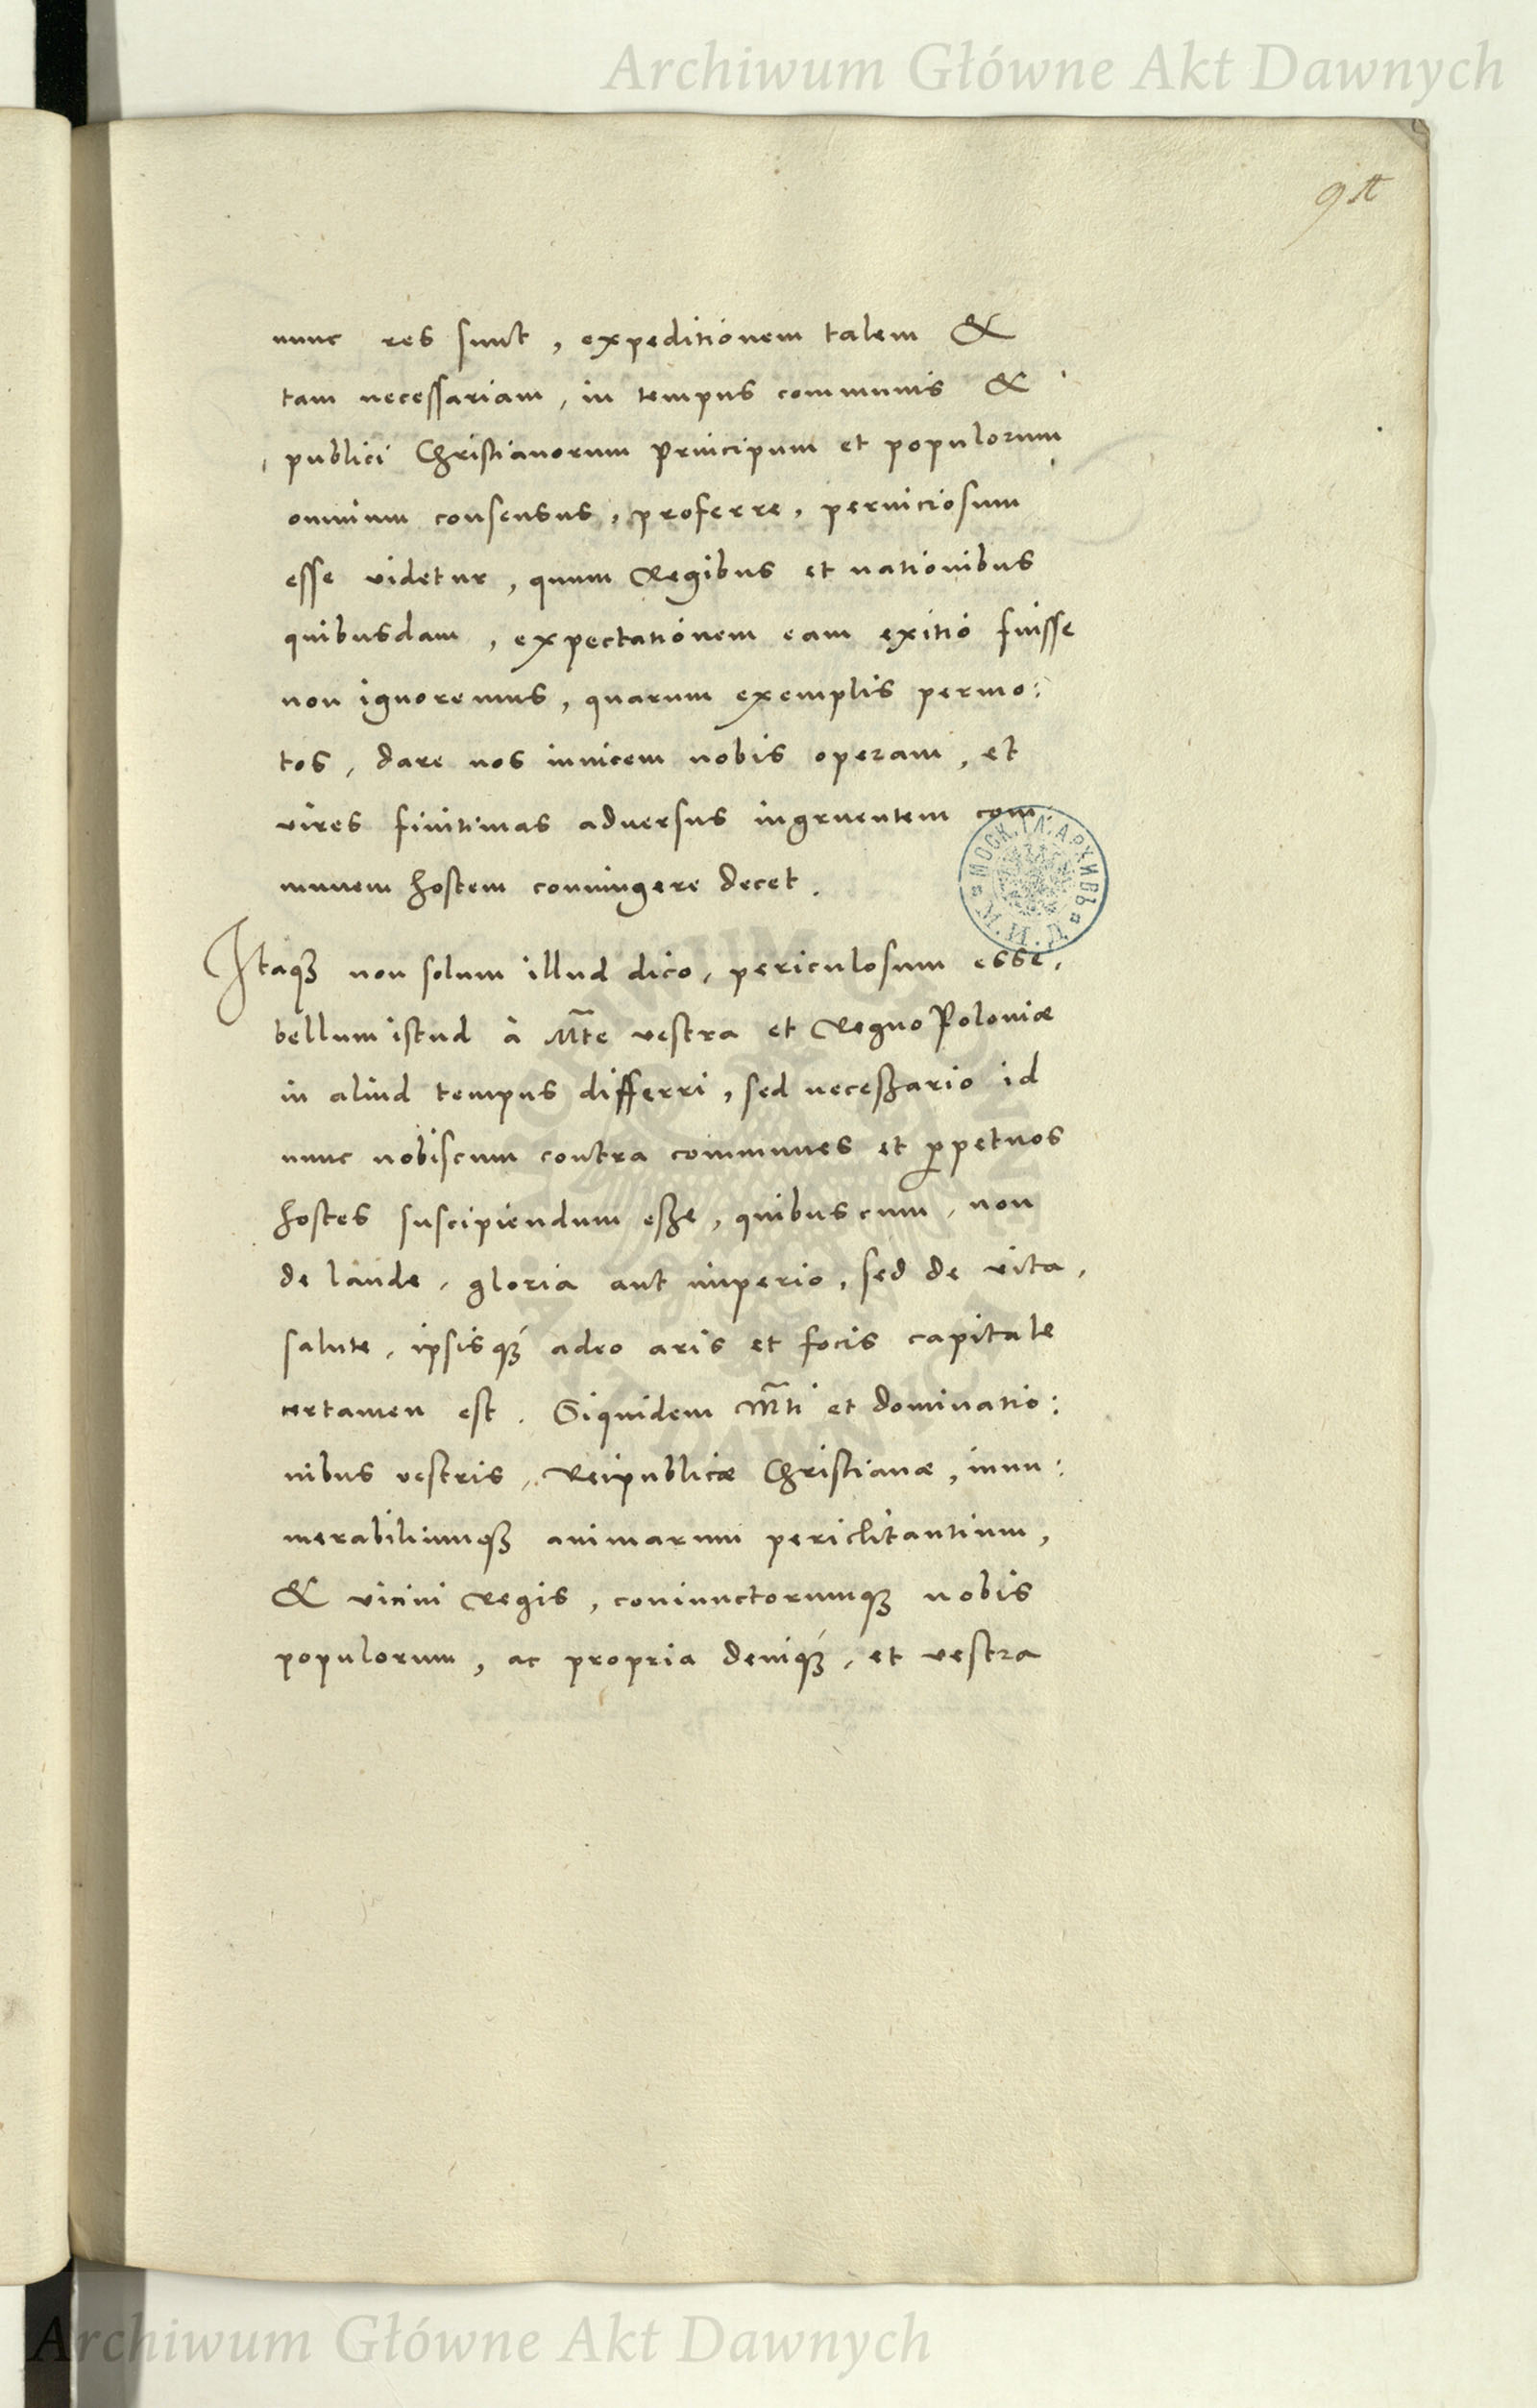 Archiwum Główne Akt Dawnych
nunc res sunt, expeditionem talem &
tam necessariam, in tempus communis &
publici Christianorum Principum et populorum
omnium consensus, proferre, perniciosum
esse videtur, quum Regibus et nationibus
quibusdam, expectationem eam exitio fuisse
non ignoremus, quarum exemplis permo:
tos, dare nos invicem nobis operam, et
vires finitimas adversus ingruentem com
munem hostem coniungere decet.
МОСК. ГЛ. АРХИВЪ
Itaqꝫ non solum illud dico, periculosum esse,
bellum istud à Mte vestra et Regno Poloniæ
in aliud tempus differri, sed neceßario id
nunc nobiscum contra communes et ꝑpetuos
hostes suscipiendum eße, quibuscum, non
de laude, gloria aut imperio, sed de vita,
salute, ipsisqꝫ adeo aris et focis capitale
certamen est. Siquidem Mti et dominatio:
nibus vestris, Reipublicæ Christianæ, innu:
merabiliumqꝫ animarum periclitantium,
& vicini Regis, coniunctorumqꝫ nobis
populorum, ac propria deniqꝫ, et vestra
Archiwum Główne Akt Dawnych